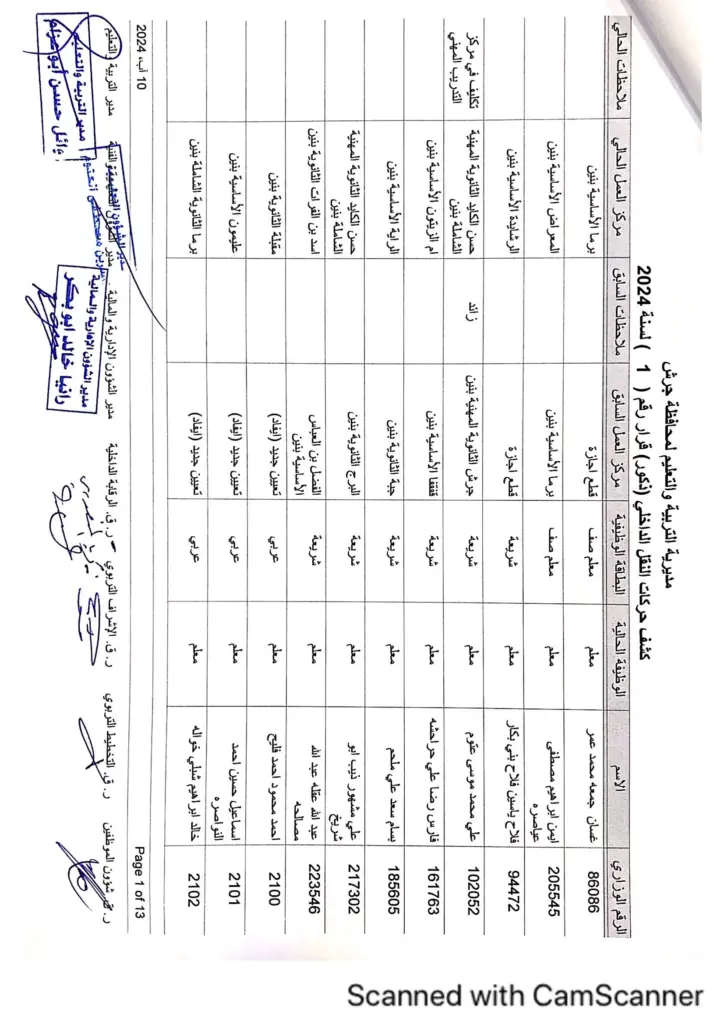 مديرية التربية والتعليم لمحافظة جرش
كشف حركات النقل الداخلي (ذكور) قرار رقم ( 1 ) لسنة 2024
الرقم الوزاري الاسم الوظيفة الحالية البطاقة الوظيفية مركز العمل السابق ملاحظات السابق مركز العمل الحالي ملاحظات الحالي
86086 غسان جمعه محمد عمر معلم معلم صف قطع اجازة برما الأساسية بنين
205545 ايمن ابراهيم مصطفى عياصره معلم معلم صف برما الأساسية بنين المعراض الأساسية بنين
94472 فلاح ياسين فلاح بني بكار معلم شريعة قطع اجازة الرشايدة الأساسية بنين
102052 علي محمد موسى عتوم معلم شريعة جرش الثانوية المهنية بنين زائد حسن الكايد الثانوية المهنية الشاملة بنين تكليف في مركز التدريب المهني
161763 فارس رضا علي حراحشه معلم شريعة قفقفا الأساسية بنين ام الزيتون الأساسية بنين
185605 بسام سعد علي ملحم معلم شريعة جبة الثانوية بنين الراية الأساسية بنين
217302 علي مشهور ذيب ابو شريخ معلم شريعة البرج الثانوية بنين حسن الكايد الثانوية المهنية الشاملة بنين
223546 عبد الله عقله عبد الله مصالحه معلم شريعة الفضل بن العباس الأساسية بنين اسد بن الفرات الثانوية بنين
2100 احمد محمود احمد فليح معلم عربي تعيين جديد (ايفاد) مقبلة الثانوية بنين
2101 اسماعيل حسين احمد النواصره معلم عربي تعيين جديد (ايفاد) عليمون الأساسية بنين
2102 خالد ابراهيم شبلي خواله معلم عربي تعيين جديد (ايفاد) برما الثانوية الشاملة بنين
Page 1 of 13
10 آب، 2024
ر. ق. شؤون الموظفين ر. ق. التخطيط التربوي ر. ق. الإشراف التربوي ر. ق. الرقابة الداخلية مدير الشؤون الإدارية والمالية مدير الشؤون التعليمية والفنية مدير التربية والتعليم
مدير الشؤون الإدارية والمالية
رانيا خالد ابو بكر
مدير الشؤون التعليمية
مدير التربية والتعليم
وائل حسن أبو عزام
Scanned with CamScanner